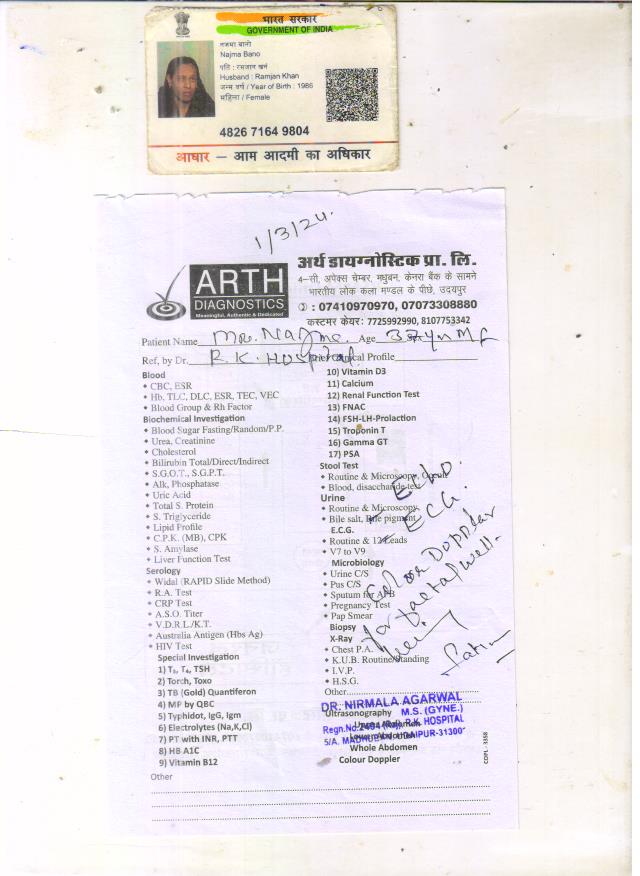 भारत सरकार
GOVERNMENT OF INDIA
नजमा बानो
Najma Bano
पति : रमजान खान
Husband : Ramjan Khan
जन्म वर्ष / Year of Birth : 1986
महिला / Female
4826 7164 9804
आधार – आम आदमी का अधिकार
1/3/24.
ARTH
DIAGNOSTICS
Meaningful, Authentic & Dedicated
अर्थ डायग्नोस्टिक प्रा. लि.
4–सी, अपेक्स चेम्बर, मधुबन, केनरा बैंक के सामने
भारतीय लोक कला मण्डल के पीछे, उदयपुर
: 07410970970, 07073308880
कस्टमर केयर: 7725992990, 8107753342
Patient Name Age M F
Ref, by Dr. R.K. Hospital Brief Clinical Profile
Blood
CBC, ESR
Hb, TLC, DLC, ESR, TEC, VEC
Blood Group & Rh Factor
Biochemical Investigation
Blood Sugar Fasting/Random/P.P.
Urea, Creatinine
Cholesterol
Bilirubin Total/Direct/Indirect
S.G.O.T., S.G.P.T.
Alk, Phosphatase
Uric Acid
Total S. Protein
S. Triglyceride
Lipid Profile
C.P.K. (MB), CPK
S. Amylase
Liver Function Test
Serology
Widal (RAPID Slide Method)
R.A. Test
CRP Test
A.S.O. Titer
V.D.R.L./K.T.
Australia Antigen (Hbs Ag)
HIV Test
Special Investigation
1) T₃, T₄, TSH
2) Torch, Toxo
3) TB (Gold) Quantiferon
4) MP by QBC
5) Typhidot, IgG, Igm
6) Electrolytes (Na,K,Cl)
7) PT with INR, PTT
8) HB A1C
9) Vitamin B12
10) Vitamin D3
11) Calcium
12) Renal Function Test
13) FNAC
14) FSH-LH-Prolaction
15) Troponin T
16) Gamma GT
17) PSA
Stool Test
Routine & Microscopy, Occult
Blood, disaccharide test
Urine
Routine & Microscopy
Bile salt, Bile pigment
E.C.G.
Routine & 12 Leads
V7 to V9
Microbiology
Urine C/S
Pus C/S
Sputum for AFB
Pregnancy Test
Pap Smear
Biopsy
X-Ray
Chest P.A.
K.U.B. Routine/Standing
I.V.P.
H.S.G.
Other
Ultrasonography
Lower Abdomen
Whole Abdomen
Colour Doppler
Other
- Echo.
- ECG.
Colour Doppler
for foetal well
being
DR. NIRMALA AGARWAL
M.S. (GYNE.)
R.K. HOSPITAL
5/A, MADHUBAN, UDAIPUR-31300
COPL - 3358